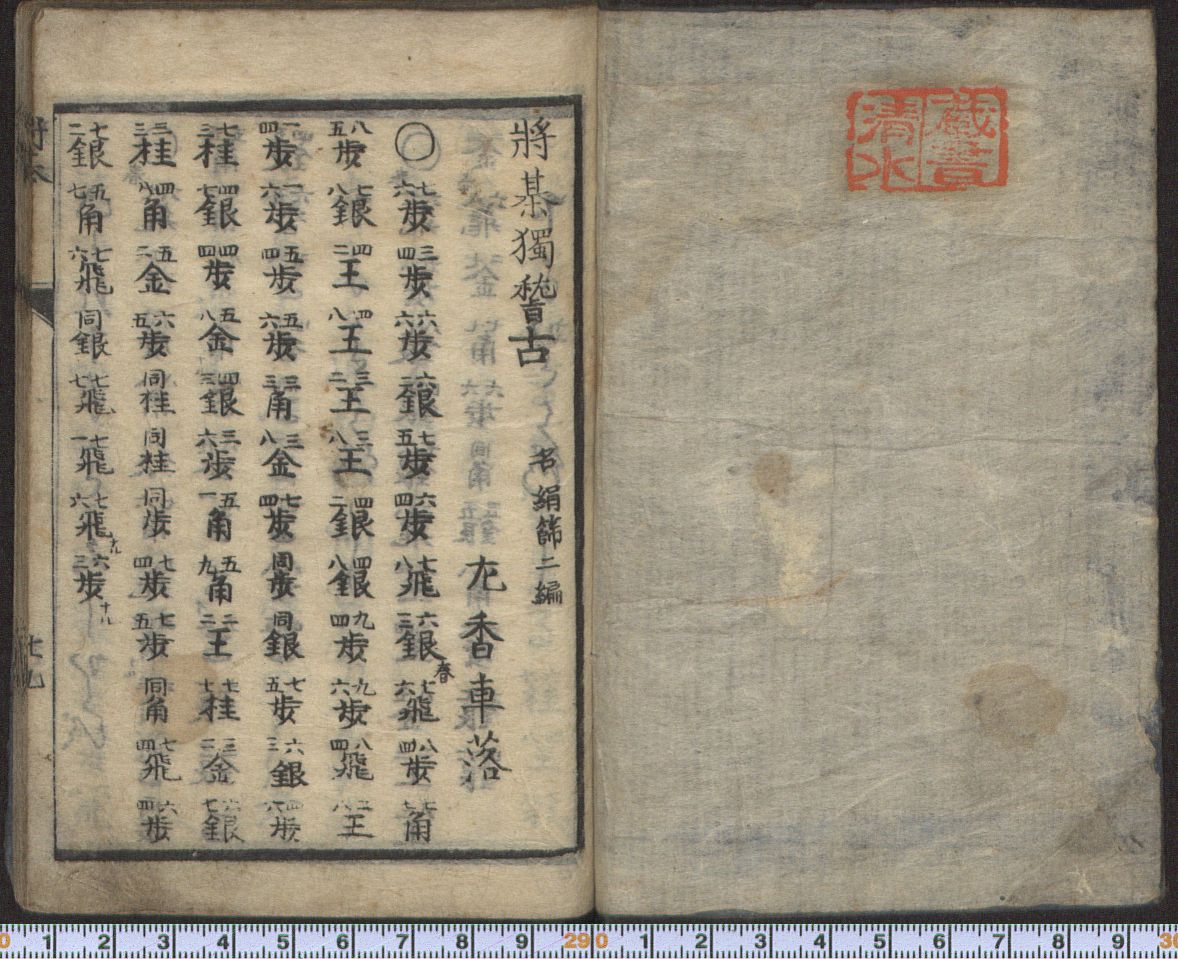 藏書
清水
將棊獨稽古 名絹篩二編
左香車落
○ 七六歩 三四歩 六六歩 六二銀 七五歩 六四歩 七八飛 六三銀 春 七六飛 八四歩 七七角
八五歩 七八銀 四二王 四八王 三二王 三八王 四二銀 四八銀 九四歩 九六歩 八四飛 二八王
一四歩 一六歩 五四歩 五六歩 三三角 三八金 七四歩 同歩 同銀 七五歩 六三銀 四六歩
七三桂 四七銀 四四歩 五八金 四三銀 三六歩 五一角 五九角 二二王 七七桂 三二金 六七銀
三三桂 四八角 五二金 六五歩 同桂 同桂 同歩 七四歩 七五歩 同角 七四飛 六四歩
七二銀 五七角 七六飛 同銀 七七飛 七一飛 七六飛 六三歩
0 1 2 3 4 5 6 7 8 9 29 0 1 2 3 4 5 6 7 8 9 30